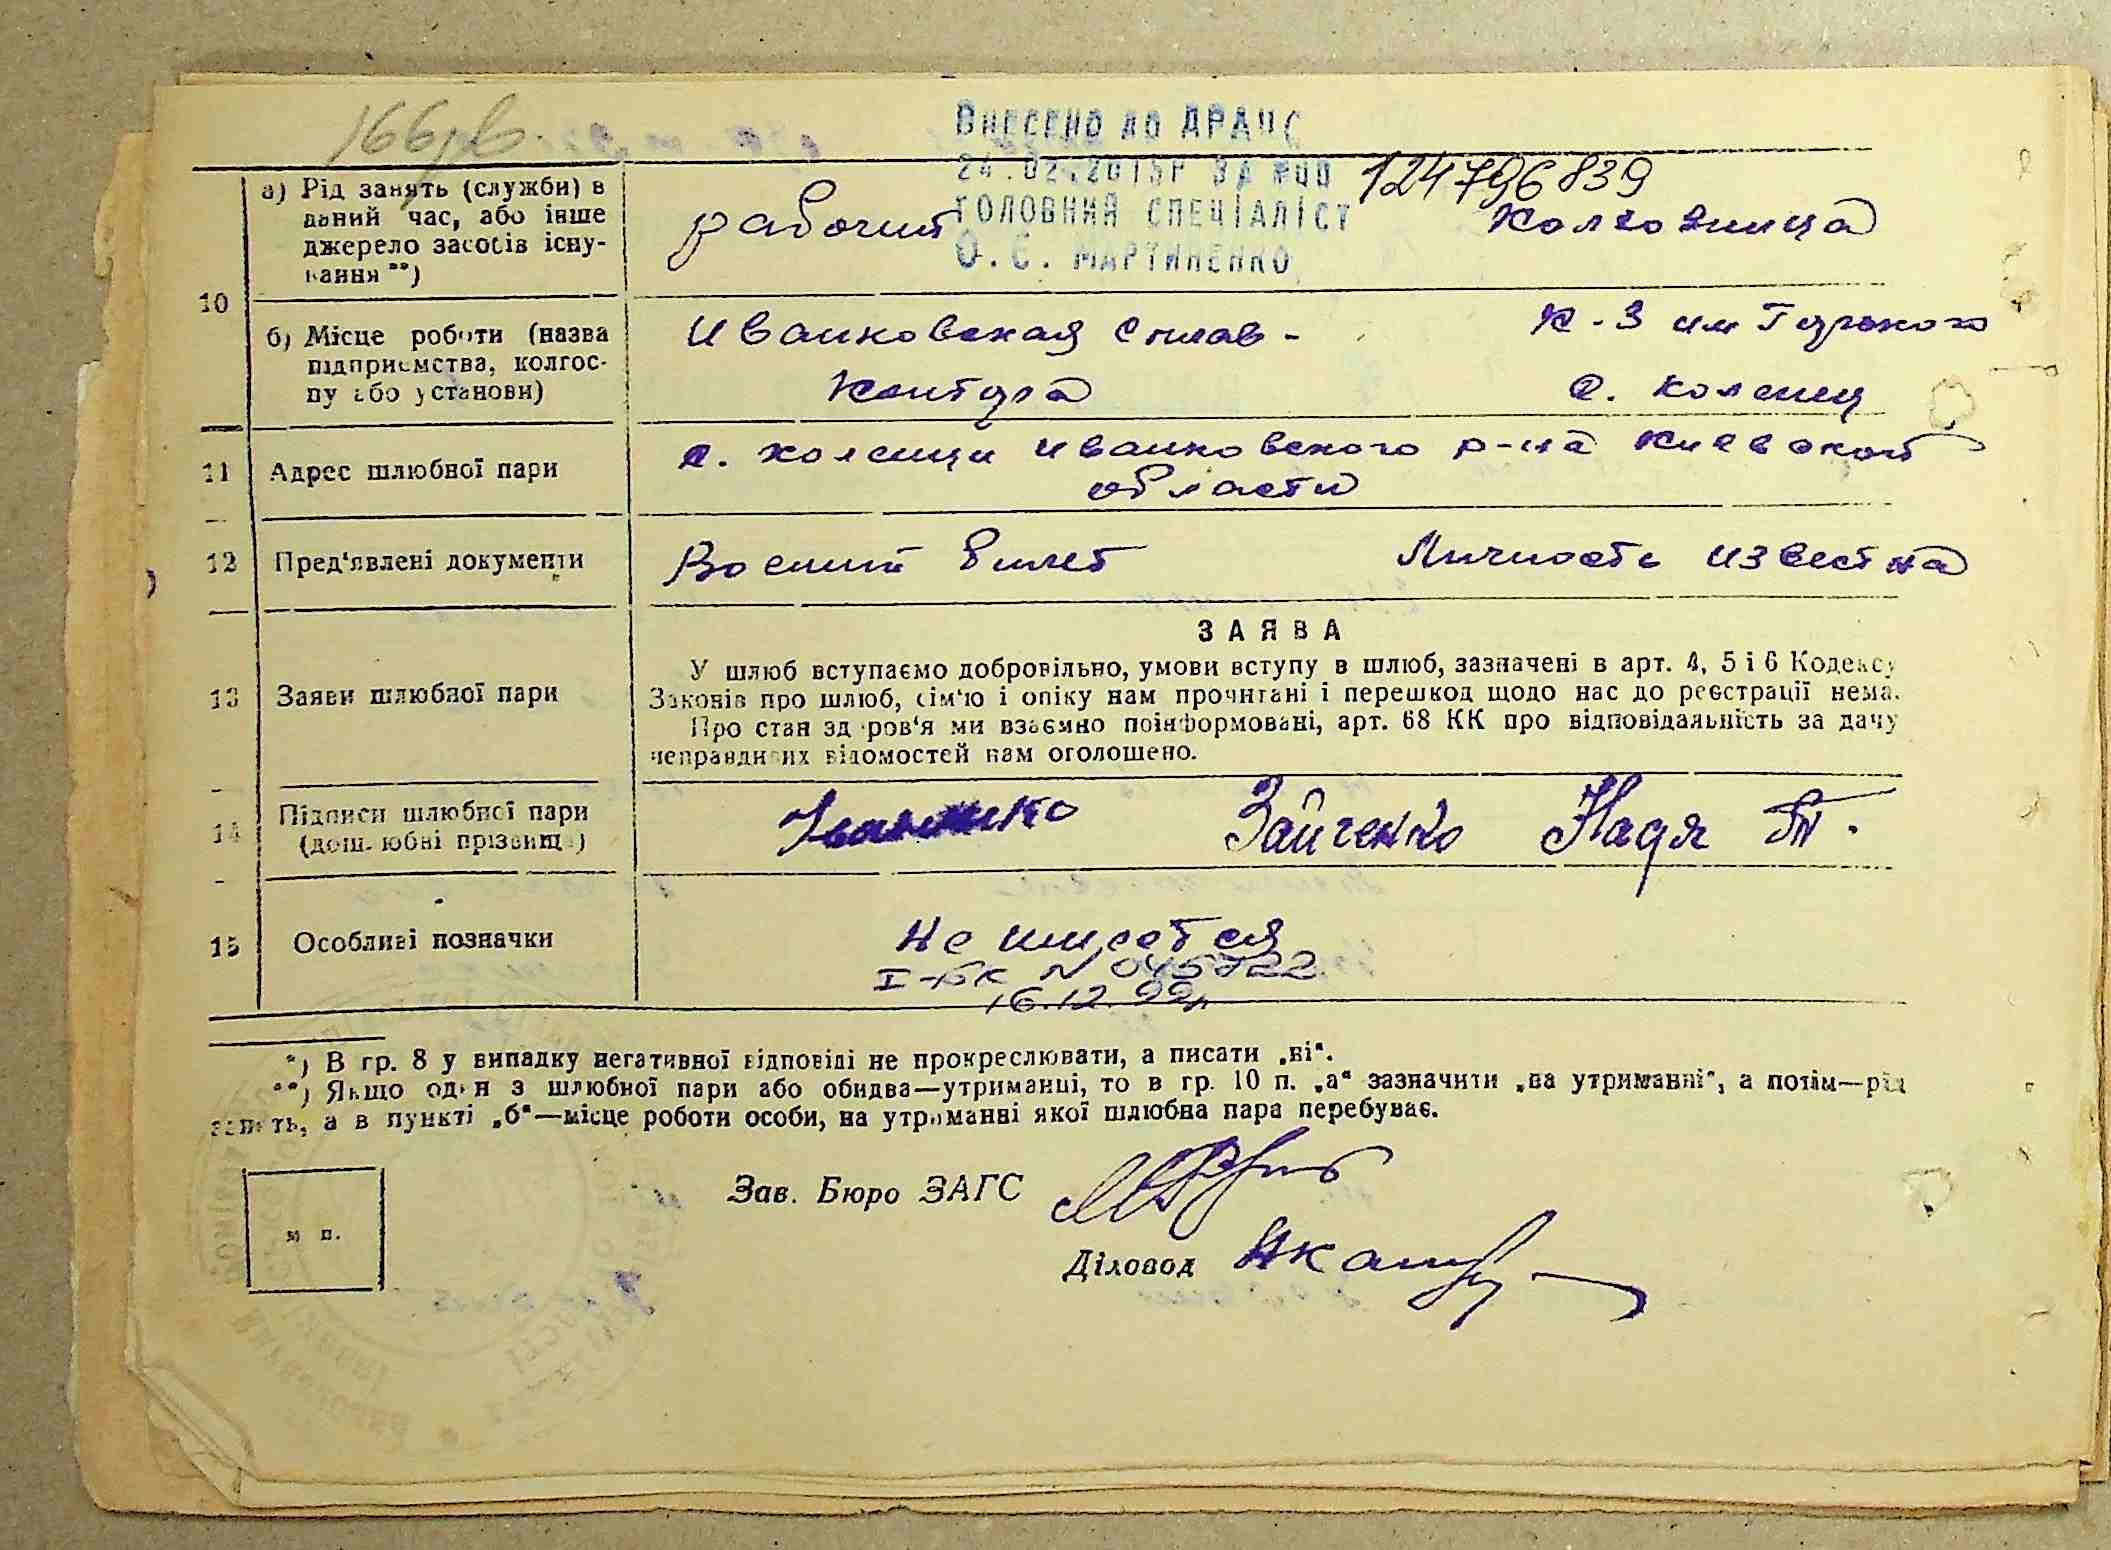 166 зв.
ВНЕСЕНО ДО ДРАЦС
24.02.2015Р ЗА №00 124796839
ГОЛОВНИЙ СПЕЦІАЛІСТ
О.Є. МАРТИНЕНКО
10
а) Рід занять (служби) в
даний час, або інше
джерело засобів існу-
вання **)
рабочий
колховница
б) Місце роботи (назва
підприємства, колгос-
пу або установи)
Иванковская сплав-
контора
к-з им Горького
с. Коленци
11 Адрес шлюбної пари
с. Коленци Иванковского р-на Киевской
области
12 Пред'явлені документи
Военый билет
Личность известна
13 Заяви шлюбної пари
ЗАЯВА
У шлюб вступаємо добровільно, умови вступу в шлюб, зазначені в арт. 4, 5 і 6 Кодексу
Законів про шлюб, сім'ю і опіку нам прочитані і перешкод щодо нас до реєстрації нема.
Про стан здоров'я ми взаємно поінформовані, арт. 68 КК про відповідальність за дачу
неправдивих відомостей нам оголошено.
14 Підписи шлюбної пари
(дошлюбні прізвища)
Зайченко Надя Т.
15 Особливі позначки
Не имеется
І-БК N 045722
16.12.99р
*) В гр. 8 у випадку негативної відповіді не прокреслювати, а писати „ні“.
**) Якщо один з шлюбної пари або обидва—утриманці, то в гр. 10 п. „а“ зазначити „на утриманні“, а потім—рід
занять, а в пункті „б“—місце роботи особи, на утриманні якої шлюбна пара перебуває.
м п.
Зав. Бюро ЗАГС
Діловод